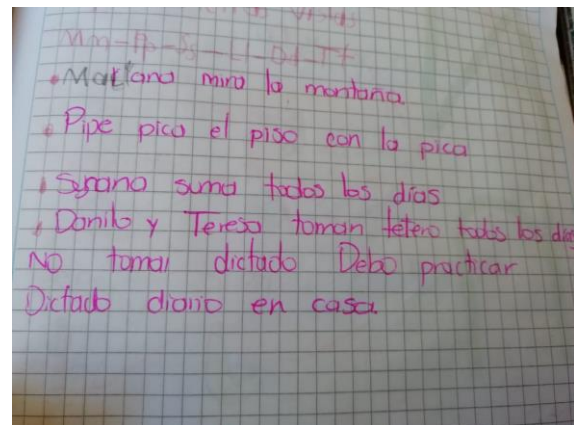 Mm-Pp-Ss-Ll-Dd-Tt
• Mariano mira la montaña.
• Pipe pica el piso con la pica
• Susano suma todos los días
• Danilo y Teresa toman tetero todos los días
NO tomar dictado Debo practicar
Dictado diario en casa.